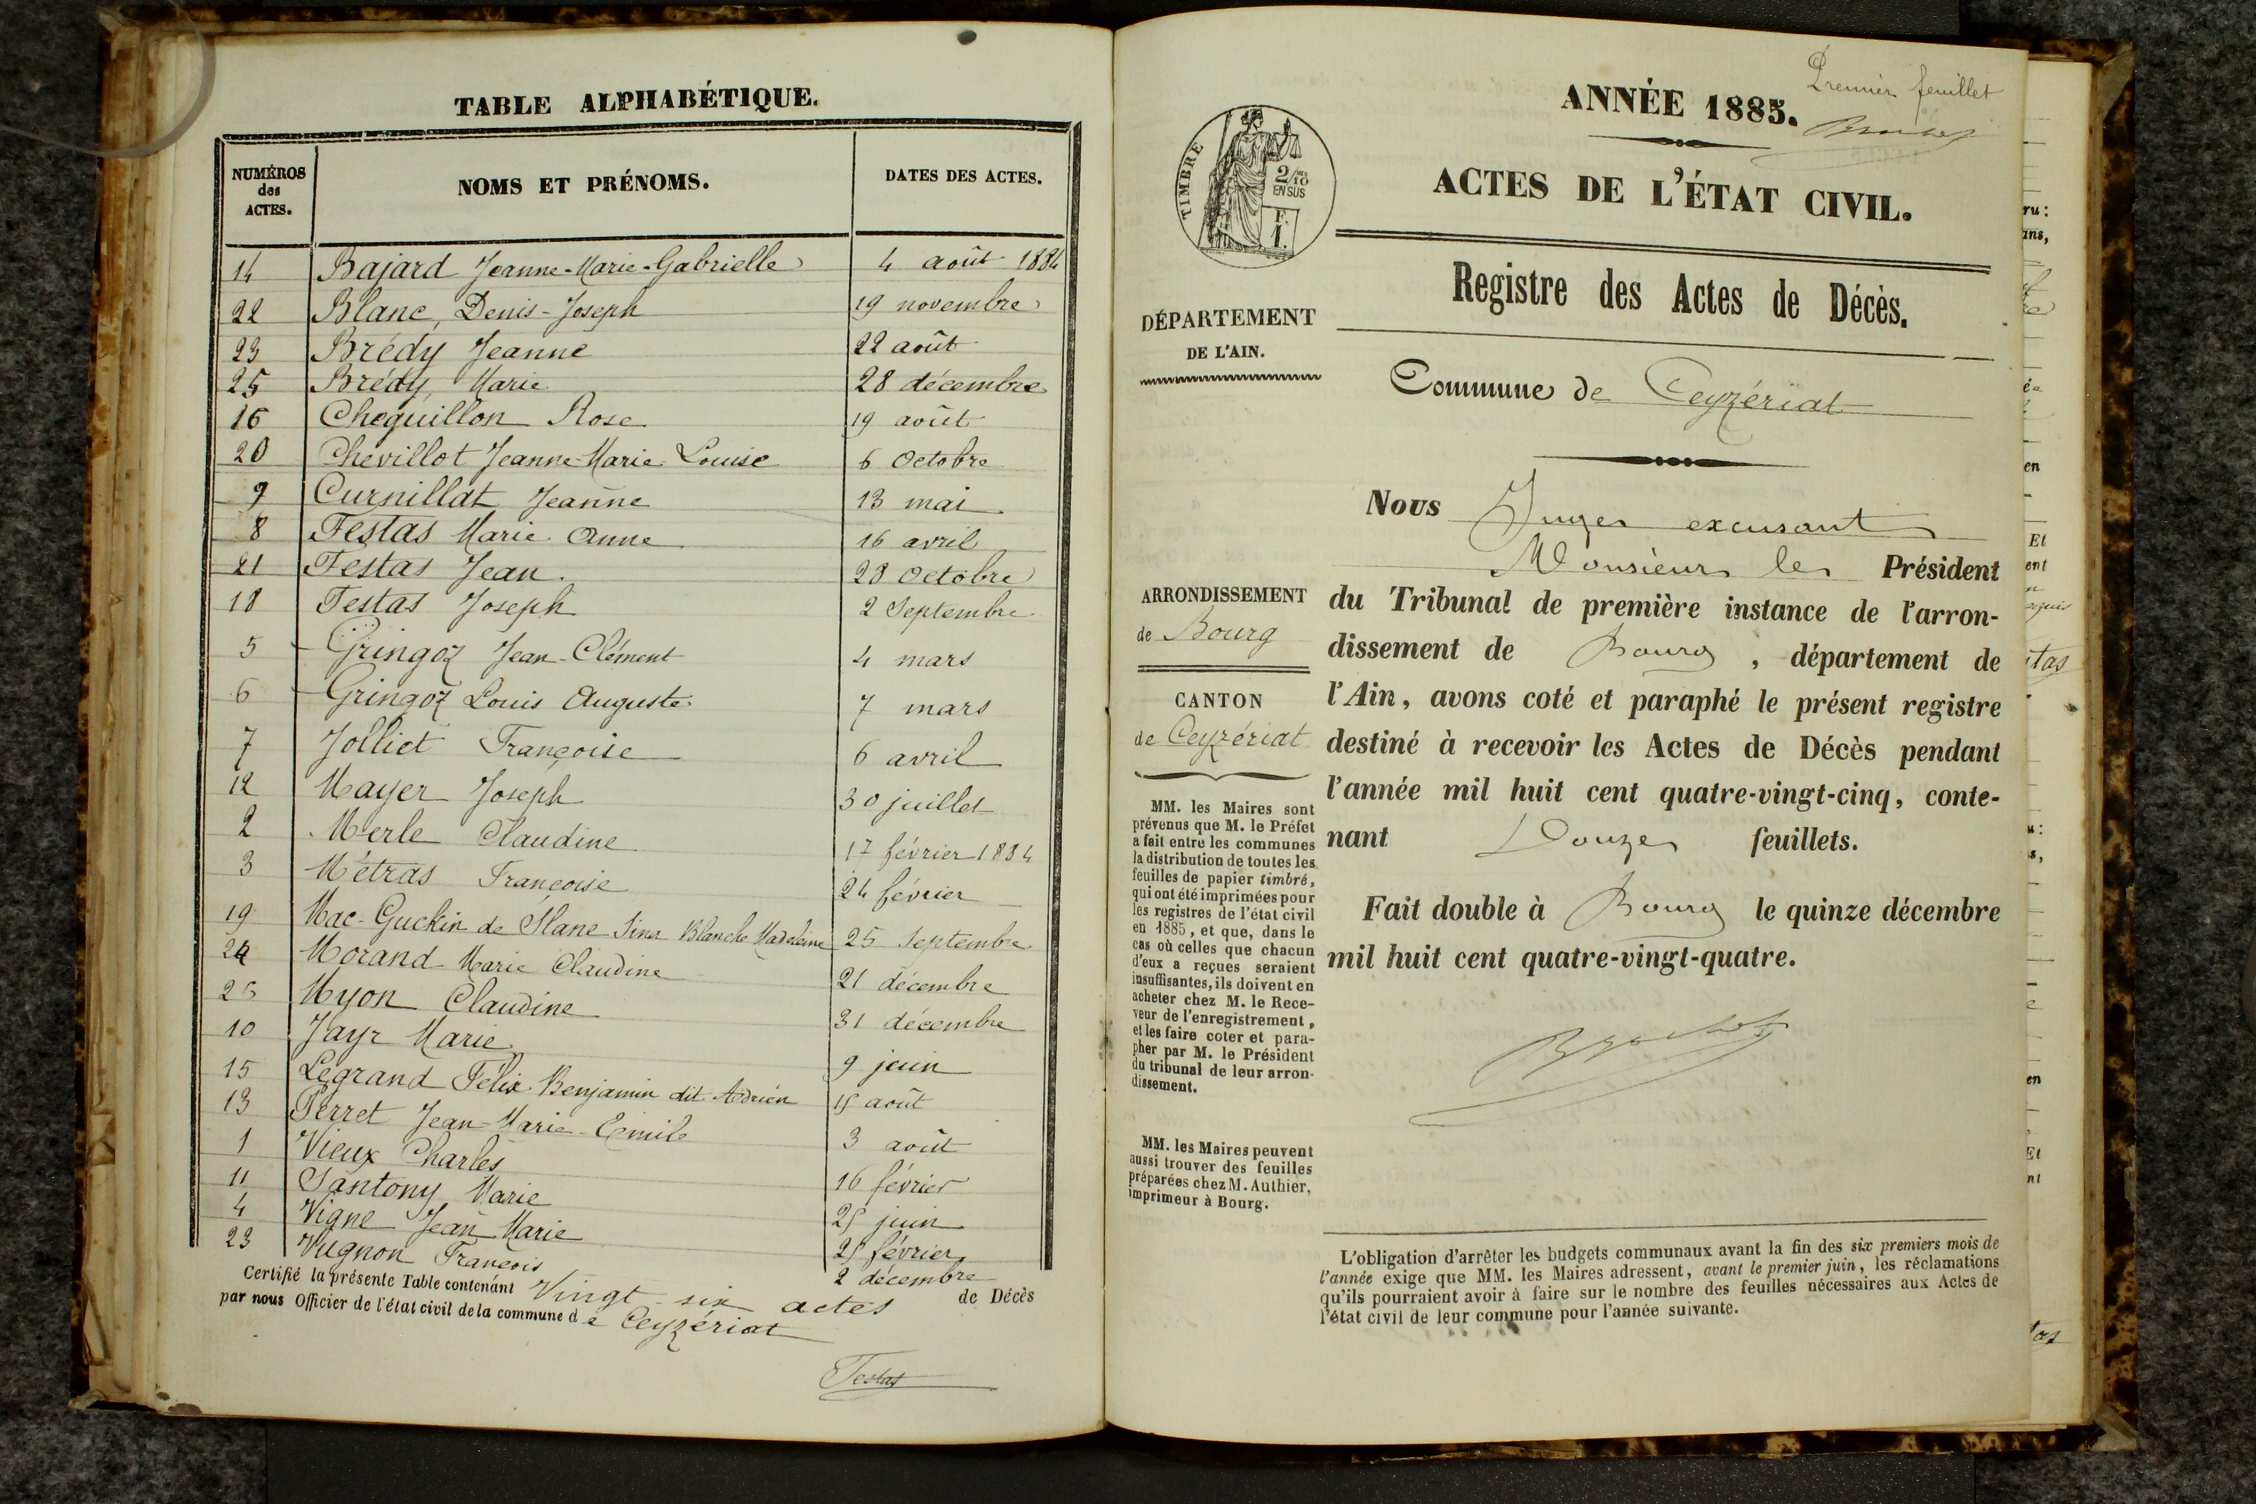 TABLE ALPHABÉTIQUE.
NUMÉROS des ACTES. NOMS ET PRÉNOMS. DATES DES ACTES.
14 Bajard Jeanne-Marie-Gabrielle 4 août 1884
22 Blanc, Denis-Joseph 19 novembre
23 Brédy Jeanne 22 août
25 Brédy Marie 28 décembre
16 Cheguillon Rose 19 août
20 Chevillot Jeanne-Marie Louise 6 Octobre
9 Curnillat Jeanne 13 mai
8 Festas Marie Anne 16 avril
21 Festas Jean. 28 Octobre
18 Festas Joseph 2 Septembre
5 Gringoz Jean-Clément 4 mars
6 Gringoz Louis Auguste 7 mars
7 Jolliet Françoise 6 avril
12 Mayer Joseph 30 juillet
2 Merle Claudine 17 février 1884
3 Métras Françoise 24 février
19 Mac-Guckin de Slane Sina Blanche Madeleine 25 Septembre
24 Morand Marie Claudine 21 décembre
26 Myon Claudine 31 décembre
10 Jayr Marie 9 juin
15 Legrand Félix Benjamin dit Adrien 15 août
13 Perret Jean-Marie-Emile 3 août
1 Vieux Charles 16 février
11 Santony Marie 25 juin
4 Vigne Jean Marie 25 février
23 Vugnon François 2 décembre
Certifié la présente Table contenant Vingt-six actes de Décès
par nous Officier de l'état civil de la commune de Ceyzériat
Festas
Premier feuillet
ANNÉE 1885.
ACTES DE L'ÉTAT CIVIL.
TIMBRE
2/10 EN SUS
Registre des Actes de Décès.
DÉPARTEMENT
DE L'AIN.
Commune de Ceyzériat
Nous Juge excusant
Monsieur le Président
du Tribunal de première instance de l'arron-
dissement de Bourg, département de
l'Ain, avons coté et paraphé le présent registre
destiné à recevoir les Actes de Décès pendant
l'année mil huit cent quatre-vingt-cinq, conte-
nant Douze feuillets.
Fait double à Bourg le quinze décembre
mil huit cent quatre-vingt-quatre.
ARRONDISSEMENT
de Bourg
CANTON
de Ceyzériat
MM. les Maires sont
prévenus que M. le Préfet
a fait entre les communes
la distribution de toutes les
feuilles de papier timbré,
qui ont été imprimées pour
les registres de l'état civil
en 1885, et que, dans le
cas où celles que chacun
d'eux a reçues seraient
insuffisantes, ils doivent en
acheter chez M. le Rece-
veur de l'enregistrement,
et les faire coter et para-
pher par M. le Président
du tribunal de leur arron-
dissement.
MM. les Maires peuvent
aussi trouver des feuilles
préparées chez M. Authier,
imprimeur à Bourg.
L'obligation d'arrêter les budgets communaux avant la fin des six premiers mois de
l'année exige que MM. les Maires adressent, avant le premier juin, les réclamations
qu'ils pourraient avoir à faire sur le nombre des feuilles nécessaires aux Actes de
l'état civil de leur commune pour l'année suivante.